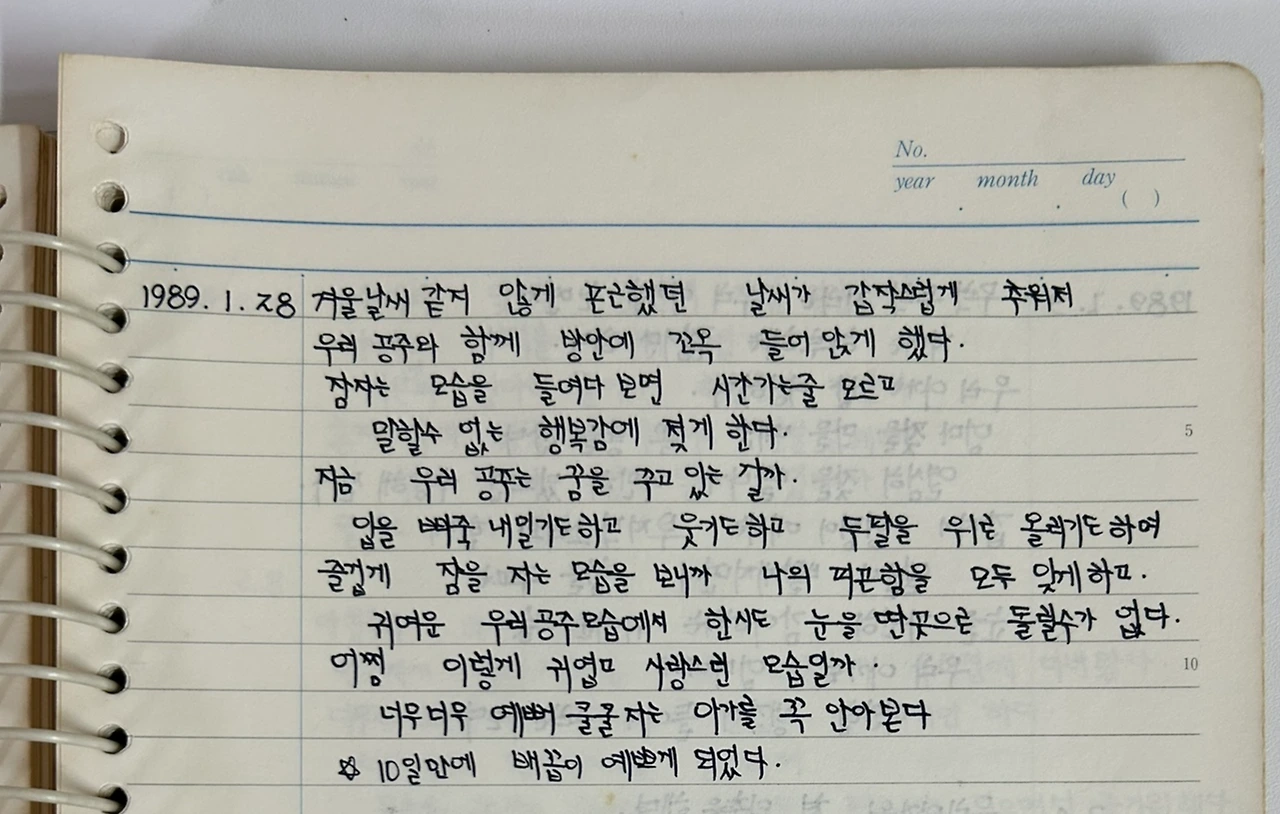 No.
year month day
( )
1989. 1. 28 겨울날씨 같지 않게 포근했던 날씨가 갑작스럽게 추워져
우리 공주와 함께 방안에 꼬옥 들어앉게 했다.
잠자는 모습을 들여다 보면 시간가는줄 모르고
말할수 없는 행복감에 젖게 한다.
5
지금 우리 공주는 꿈을 꾸고 있는 걸까.
입을 삐죽 내밀기도하고 웃기도하고 두팔을 위로 올리기도하여
즐겁게 잠을 자는 모습을 보니까 나의 피곤함을 모두 잊게하고.
귀여운 우리공주모습에서 한시도 눈을 딴곳으로 돌릴수가 없다.
어쩜 이렇게 귀엽고 사랑스런 모습일까.
10
너무너무 예뻐 쿨쿨자는 아가를 꼭 안아본다
☆ 10일만에 배꼽이 예쁘게 되었다.